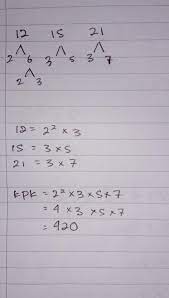 12 15 21
2 6 3 5 3 7
2 3
12 = 2² × 3
15 = 3 × 5
21 = 3 × 7
KPK = 2² × 3 × 5 × 7
= 4 × 3 × 5 × 7
= 420